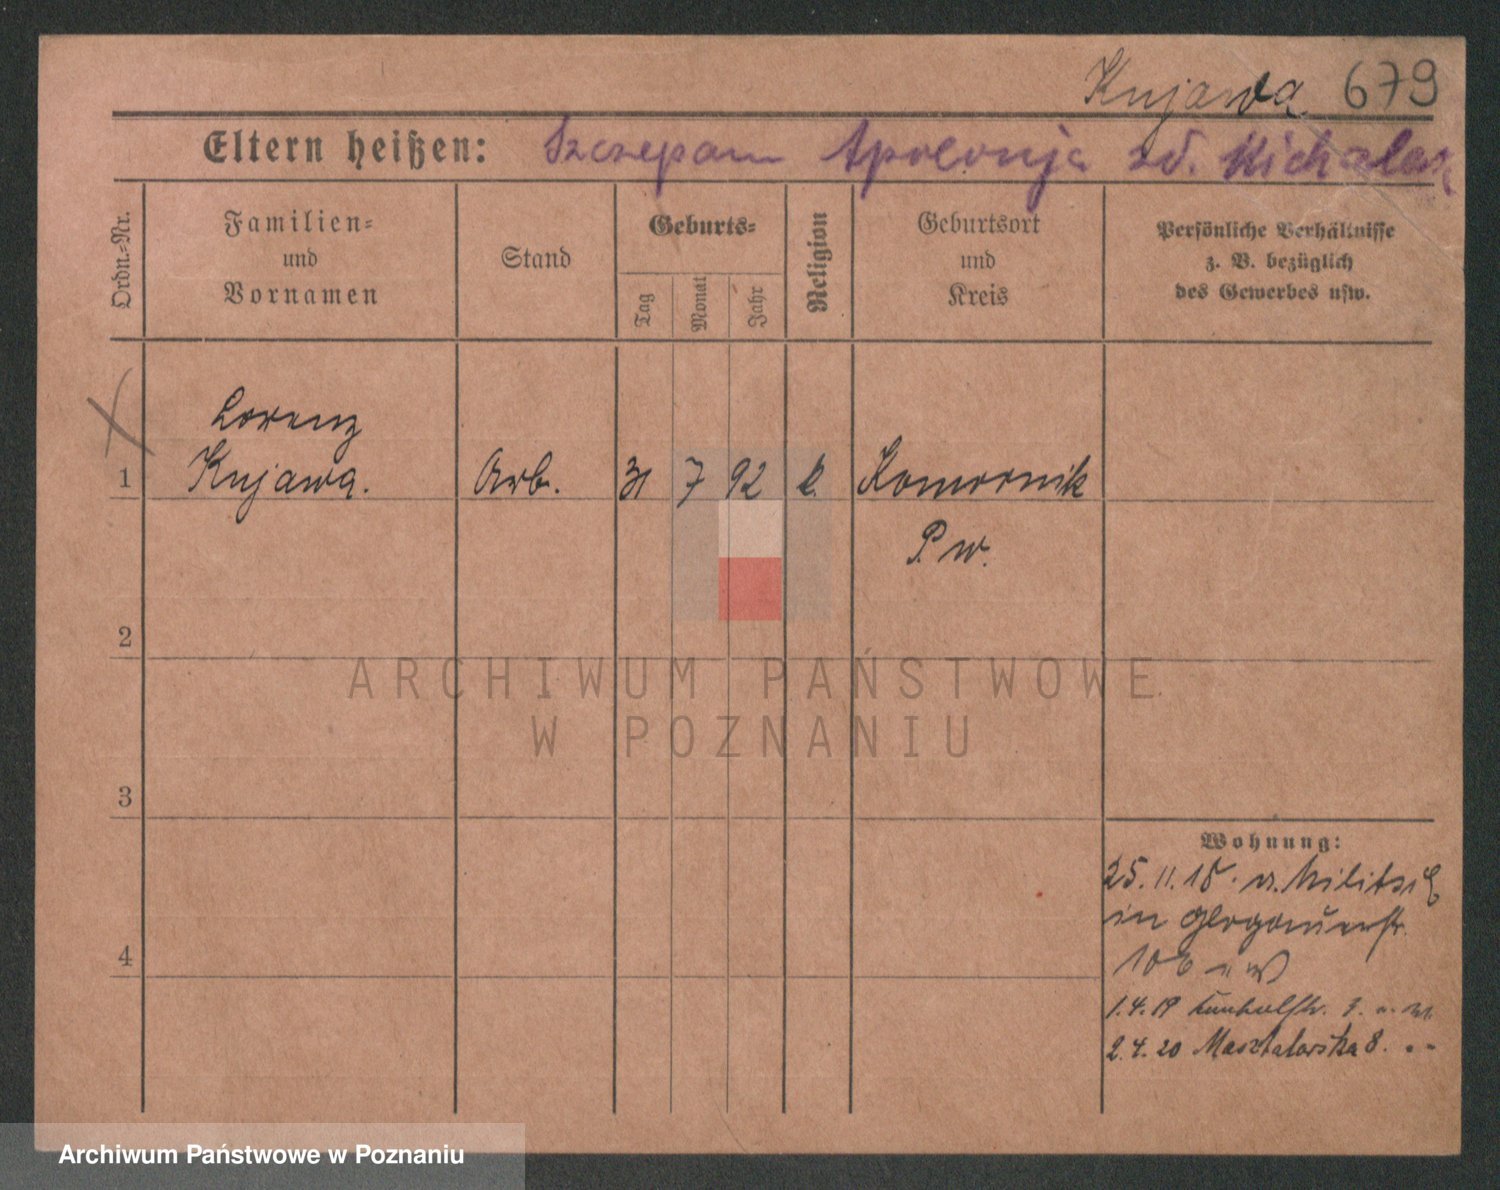 Kujawa 679
Eltern heißen: Szczepan Apolonja zd. Michalak
Ordn.-Nr.
Familien-
und
Vornamen
Stand
Geburts-
Tag
Monat
Jahr
Religion
Geburtsort
und
Kreis
Persönliche Verhältnisse
z. B. bezüglich
des Gewerbes usw.
Lorenz
1 Kujawa. Arb. 31 7 92 k. Komornik
P. w.
2
ARCHIWUM PAŃSTWOWE
W POZNANIU
3
Wohnung:
25.11.18. v. Militsch
in Glogauerstr.
4
106
1.4.19 3.
2.4.20 Masztalarska 8.
Archiwum Państwowe w Poznaniu